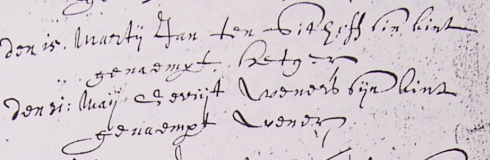 den 15. Martij Jan ten Sithoff sin kint
genaempt Retger
den 21: Maij Gerrijt Wenerts sijn kint
genaempt Wener